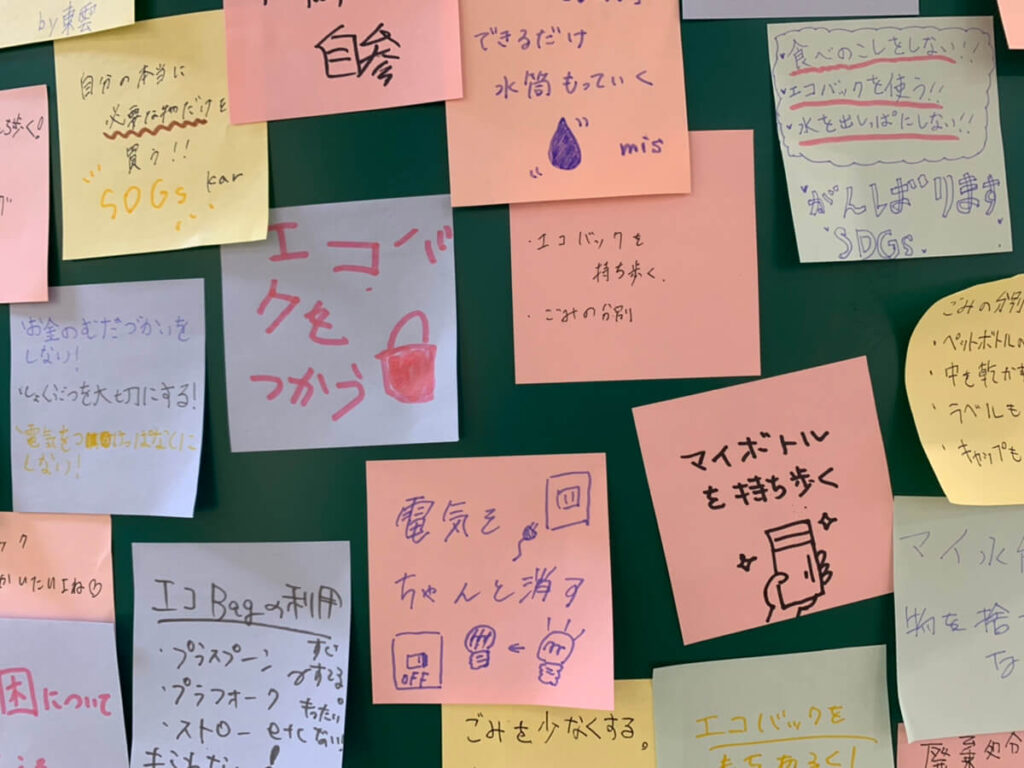 by東雲
自分の本当に
必要な物だけを
買う!!
SDGs
kar
自参
できるだけ
水筒もっていく
mis
・食べのこしをしない!!
・エコバックを使う!!
・水を出しぱにしない!!
がんばります
SDGs
エコバ
クを
つかう
・エコバックを
持ち歩く.
・ごみの分別
お金のむだづかいを
しない!
しょくぶつを大切にする!
電気をつ けっぱなしに
しない!
マイボトル
を持ち歩く
ごみの分別
・ペットボトルの
・中を乾かす
・ラベルも
・キャップも
電気を
ちゃんと消す
OFF
エコBagの利用
・プラスプーン
・プラフォーク
・ストロー etc
すぐ
すてる
もったい
ない!
ック
困について
ごみを少なくする。
エコバックを
もちあるく!
マイ水
物を捨
な
廃棄処分